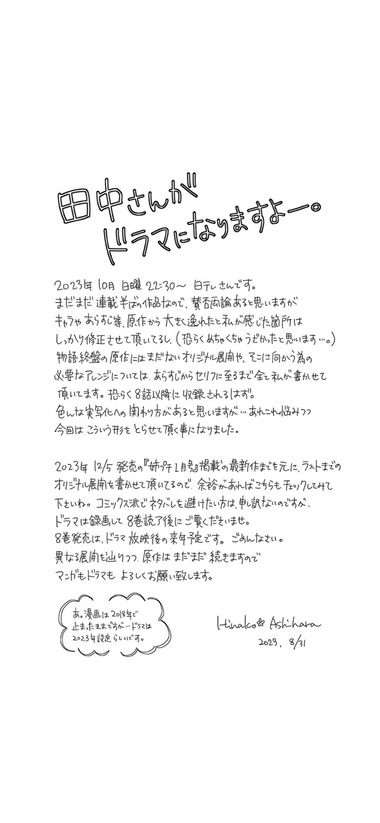 田中さんが
ドラマになりますよー。
2023年 10月 日曜 22:30〜 日テレさんです。
まだまだ 連載半ばの作品なので、賛否両論あると思いますが
キャラやあらすじ等、原作から大きく逸れたと私が感じた箇所は
しっかり修正させて頂いてるし、(恐らくめちゃくちゃうざかったと思います…。)
物語終盤の原作にはまだないオリジナル展開や、そこに向かう為の
必要なアレンジについては、あらすじからセリフに至るまで全て私が書かせて
頂いてます。恐らく8話以降に収録されるはず。
色んな実写化への関わり方があると思いますが…あれこれ悩みつつ
今回はこういう形をとらせて頂く事になりました。
2023年 12/5 発売の『姉系1月号』掲載の最新作までを元に、ラストまでの
オリジナル展開を書かせて頂いてるので、余裕があればこちらもチェックしてみて
下さいね。コミックス派でネタバレを避けたい方は、申し訳ないのですが、
ドラマは録画して、8巻読了後にご覧くださいませ。
8巻発売は、ドラマ放映後の来年予定です。ごめんなさい。
異なる展開を辿りつつ、原作はまだまだ続きますので
マンガもドラマも よろしくお願い致します。
あ。漫画は2018年で
止まったままですが…ドラマは
2023年設定らしいです。
Hinako Ashihara
2023. 8/31